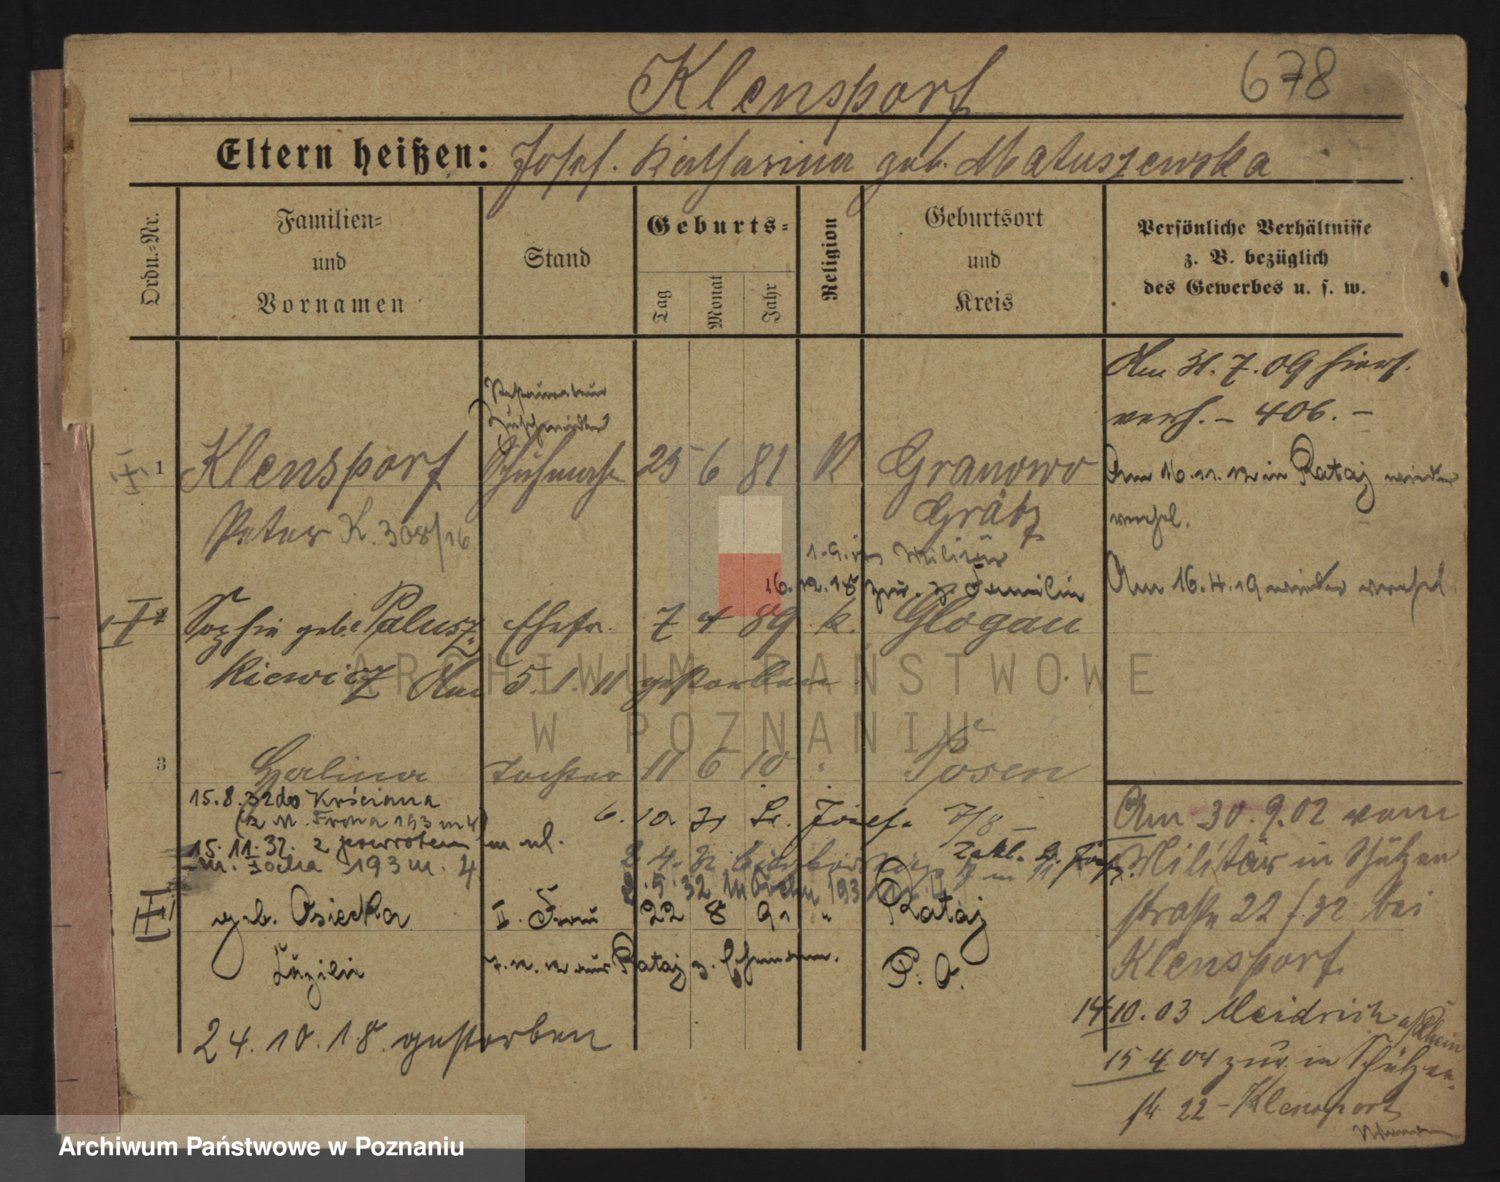 Klensporf
678
Eltern heißen: Josef. Katharina geb. Matuszewska
Ordn.-Nr.
Familien- und Vornamen
Stand
Geburts-
Tag Monat Jahr
Religion
Geburtsort und Kreis
Persönliche Verhältnisse z. B. bezüglich des Gewerbes u. s. w.
Am 31. 7. 09 hier
verh. – 406. –
Restaurateur
Zuschneider
1 Klensporf Schuhmach 25 6 81 K Granowo
Am 16. 11. 12 in Rataj wieder
vereh.
Peter K. 308/16 Grätz
Militär
16. 12. 18 zur. z. Familie
Am 16. 4. 19 wieder vereh.
2 Sophie geb. Palusz- Ehefr. 7 4 89 k. Glogau
kiewicz Am 5. 1. 11 gestorben
ARCHIWUM PAŃSTWOWE
W POZNANIU
3 Halina Tochter 11 6 10 " Posen
15. 8. 32 do Krściana
6. 10. 31 Sr. Józef. 7/8
15. 11. 32. z powrotem
m. Focha 193 m. 4
geb. Osiecka II. Frau 22 8 91 " Rataj
Luzie aus Rataj z. Ehemann. P. O.
24. 10. 18. gestorben
Am 30. 9. 02 vom
Militär in Schützen
straße 22 / 32 bei
Klensporf.
14 10. 03 Meidrich a/Rhein
15 4 04 zur. in Schützen-
str 22 – Klensporf
Archiwum Państwowe w Poznaniu